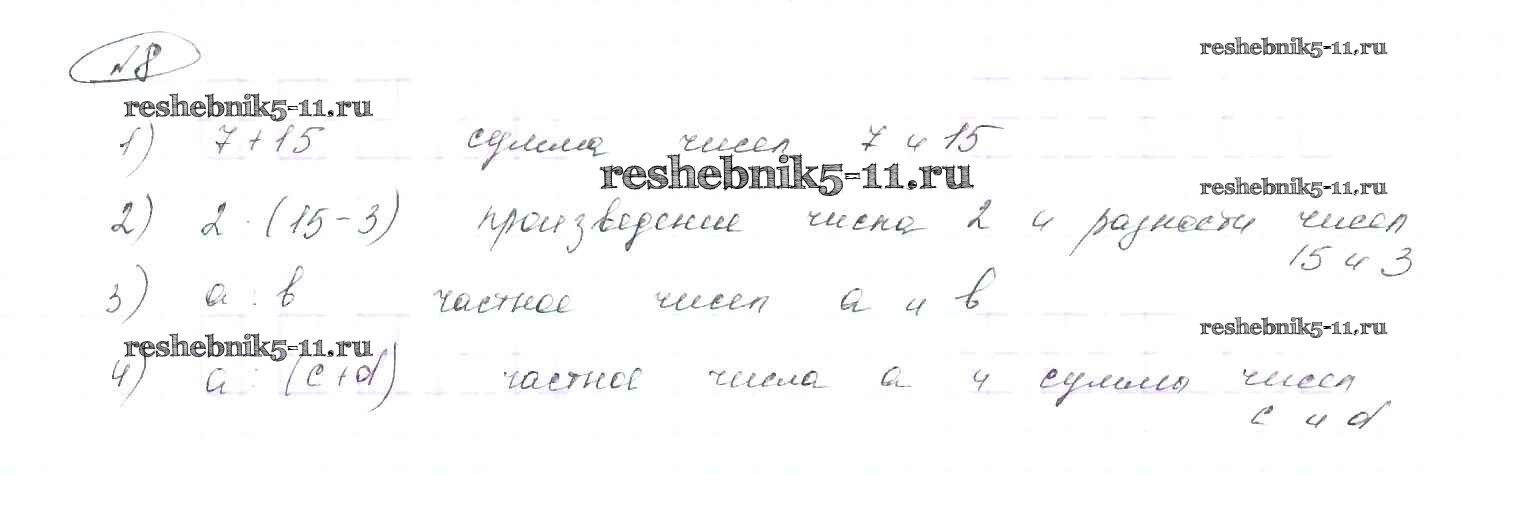 №8
reshebnik5-11.ru
reshebnik5-11.ru
1) 7+15 сумма чисел 7 и 15
reshebnik5-11.ru
reshebnik5-11.ru
2) 2·(15-3) произведение числа 2 и разности чисел
15 и 3
3) a:b частное чисел a и b
reshebnik5-11.ru
reshebnik5-11.ru
4) a:(c+d) частное числа a и суммы чисел
c и d